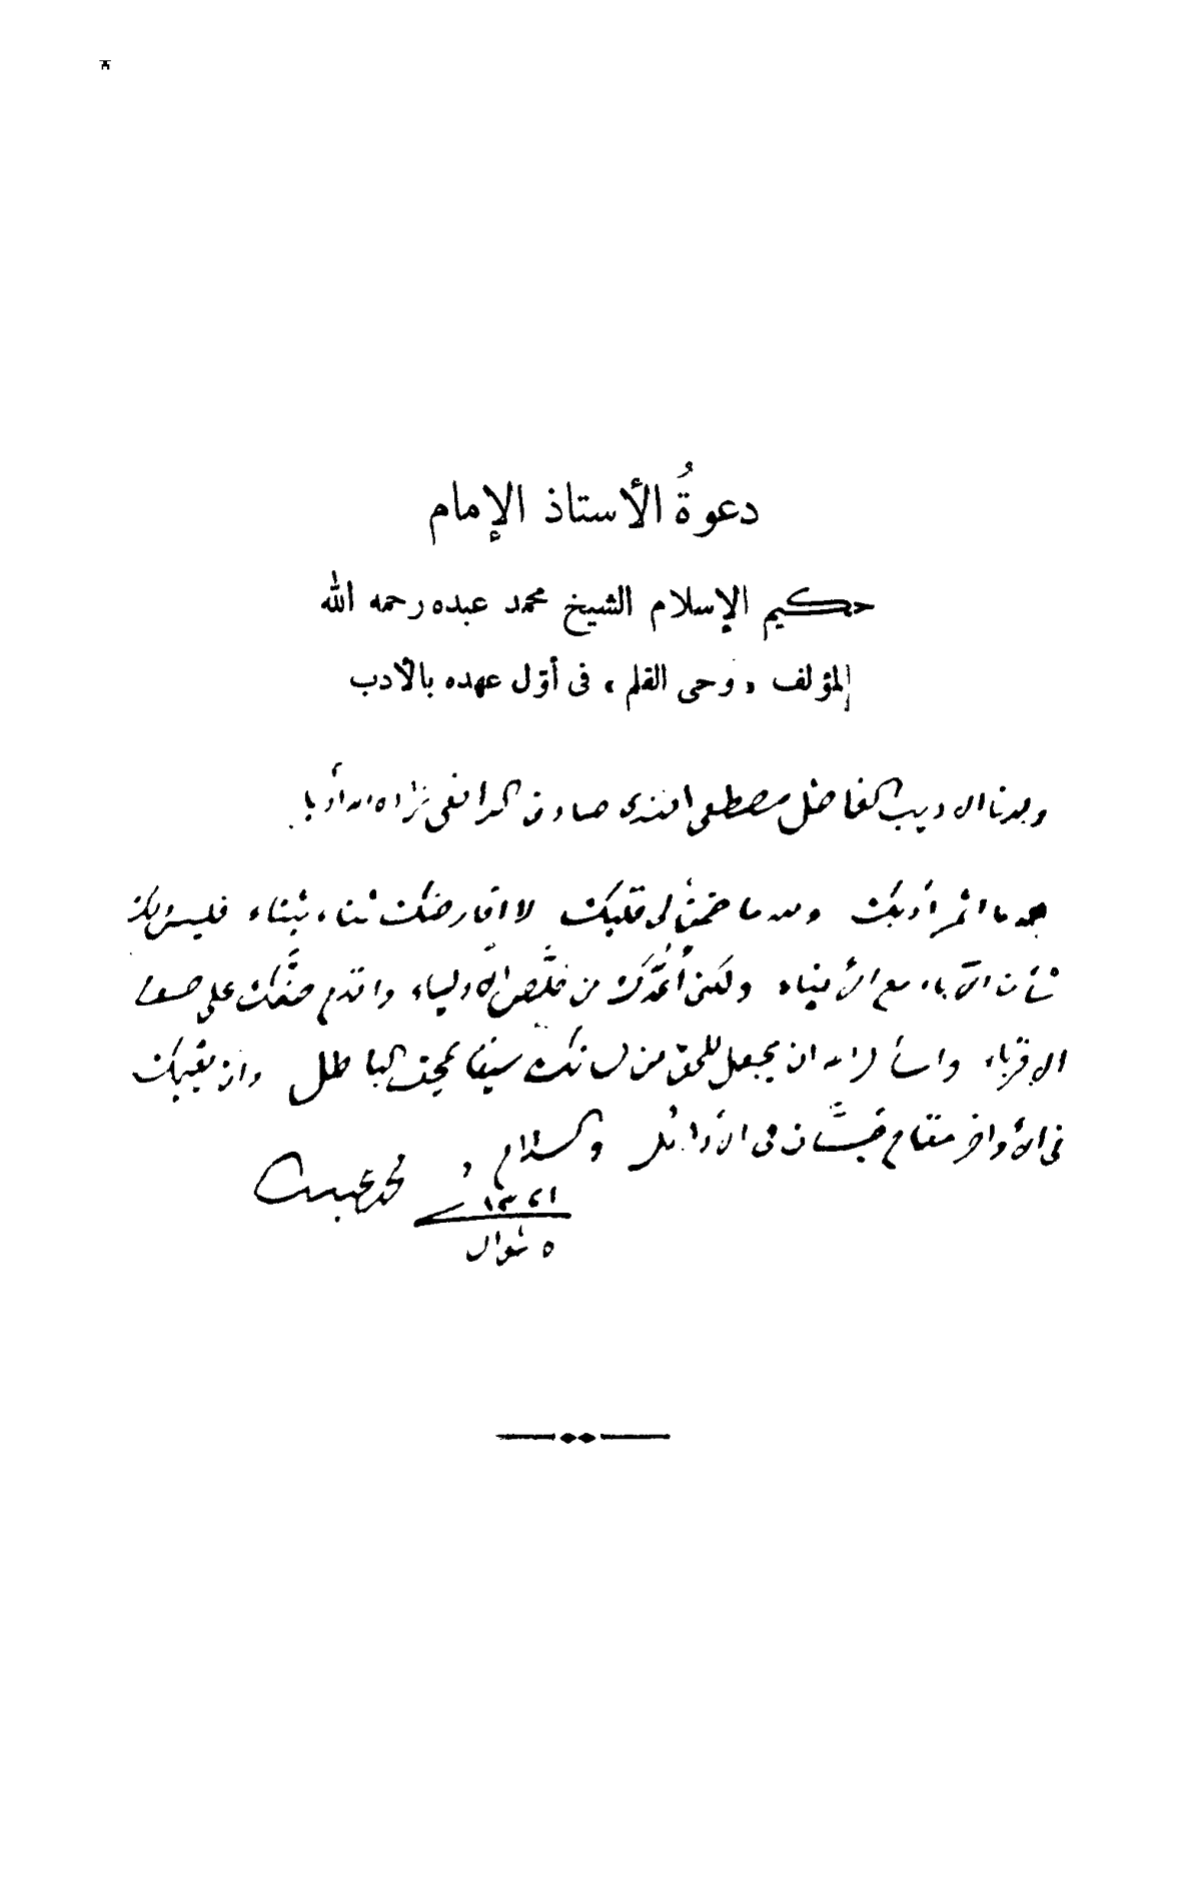 دعوةُ الأستاذ الإمام
حكيم الإسلام الشيخ محمد عبده رحمه الله
لمؤلف «وحى القلم» فى أوّل عهده بالأدب
ولدنا الاديب الفاضل مصطفى افندى صادق الرافعى زاده الله أدبا
لله ما اثمر أدبك ولله ما ضمن لى قلبك لا اقارضك ثناء بثناء فليس ذلك
شأن الآباء مع الأبناء ولكنى أعُدّك من خلّص الأولياء واقدم صفّك على صف
الاقرباء واسأل الله ان يجعل للحق من لسانك سيفا يمحق الباطل وان يقيمك
فى الأواخر مقام حسّان فى الأوائل والسلام
محمد عبده
١٣٢١
٥ شوال